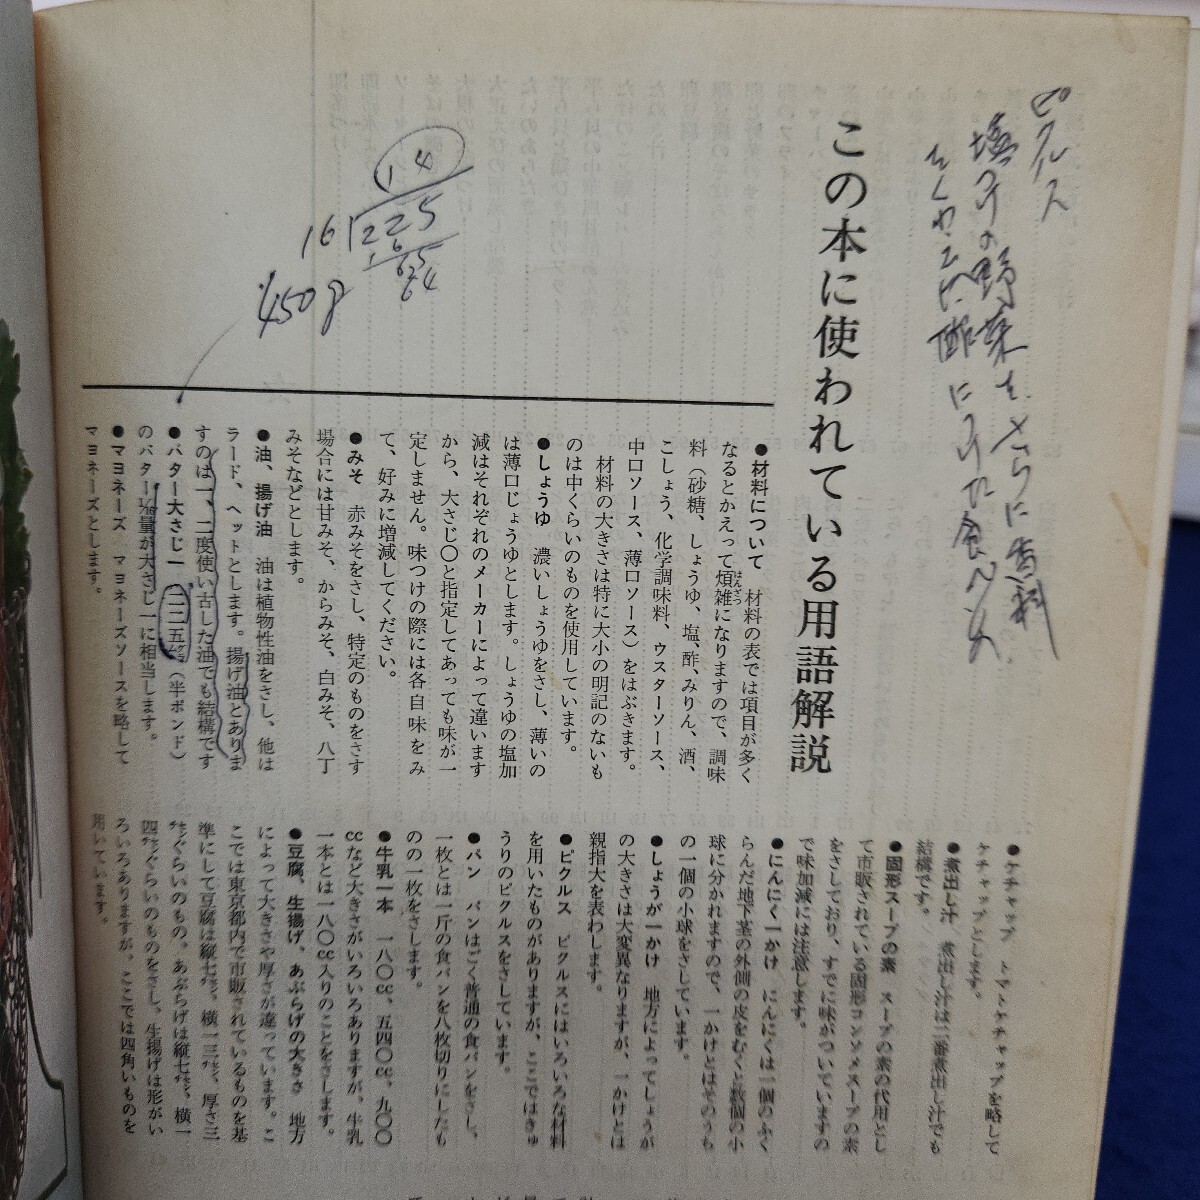 ピクルス
塩づけの野菜を、さらに香料
をくわえた酢につけた食べもの
この本に使われている用語解説
1.4
16
225
16
65
64
450g
●材料について　材料の表では項目が多く
なるとかえって煩雑になりますので、調味
はんざつ
料（砂糖、しょうゆ、塩、酢、みりん、酒、
こしょう、化学調味料、ウスターソース、
中口ソース、薄口ソース）をはぶきます。
材料の大きさは特に大小の明記のないも
のは中くらいのものを使用しています。
●しょうゆ　濃いしょうゆをさし、薄いの
は薄口じょうゆとします。しょうゆの塩加
減はそれぞれのメーカーによって違います
から、大さじ〇と指定してあっても味が一
定しません。味つけの際には各自味をみ
て、好みに増減してください。
●みそ　赤みそをさし、特定のものをさす
場合には甘みそ、からみそ、白みそ、八丁
みそなどとします。
●油、揚げ油　油は植物性油をさし、他は
ラード、ヘットとします。揚げ油とありま
すのは一、二度使い古した油でも結構です
●バター大さじ一　二二五㌘（半ポンド）
のバター1/16量が大さじ一に相当します。
●マヨネーズ　マヨネーズソースを略して
マヨネーズとします。
●ケチャップ　トマトケチャップを略して
ケチャップとします。
●煮出し汁　煮出し汁は二番煮出し汁でも
結構です。
●固形スープの素　スープの素の代用とし
て市販されている固形コンソメスープの素
をさしており、すでに味がついていますの
で味加減には注意します。
●にんにく一かけ　にんにくは一個のふく
らんだ地下茎の外側の皮をむくと数個の小
球に分かれますので、一かけとはそのうち
の一個の小球をさしています。
●しょうが一かけ　地方によってしょうが
の大きさは大変異なりますが、一かけとは
親指大を表わします。
●ピクルス　ピクルスにはいろいろな材料
を用いたものがありますが、ここではきゅ
うりのピクルスをさしています。
●パン　パンはごく普通の食パンをさし、
一枚とは一斤の食パンを八枚切りにしたも
のの一枚をさします。
●牛乳一本　一八〇cc、五四〇cc、九〇〇
ccなど大きさがいろいろありますが、牛乳
一本とは一八〇cc入りのことをさします。
●豆腐、生揚げ、あぶらげの大きさ　地方
によって大きさや厚さが違っています。こ
こでは東京都内で市販されているものを基
準にして豆腐は縦七㌢、横一三㌢、厚さ三
㌢ぐらいのもの。あぶらげは縦七㌢、横一
四㌢ぐらいのものをさし、生揚げは形がい
ろいろありますが、ここでは四角いものを
用いています。